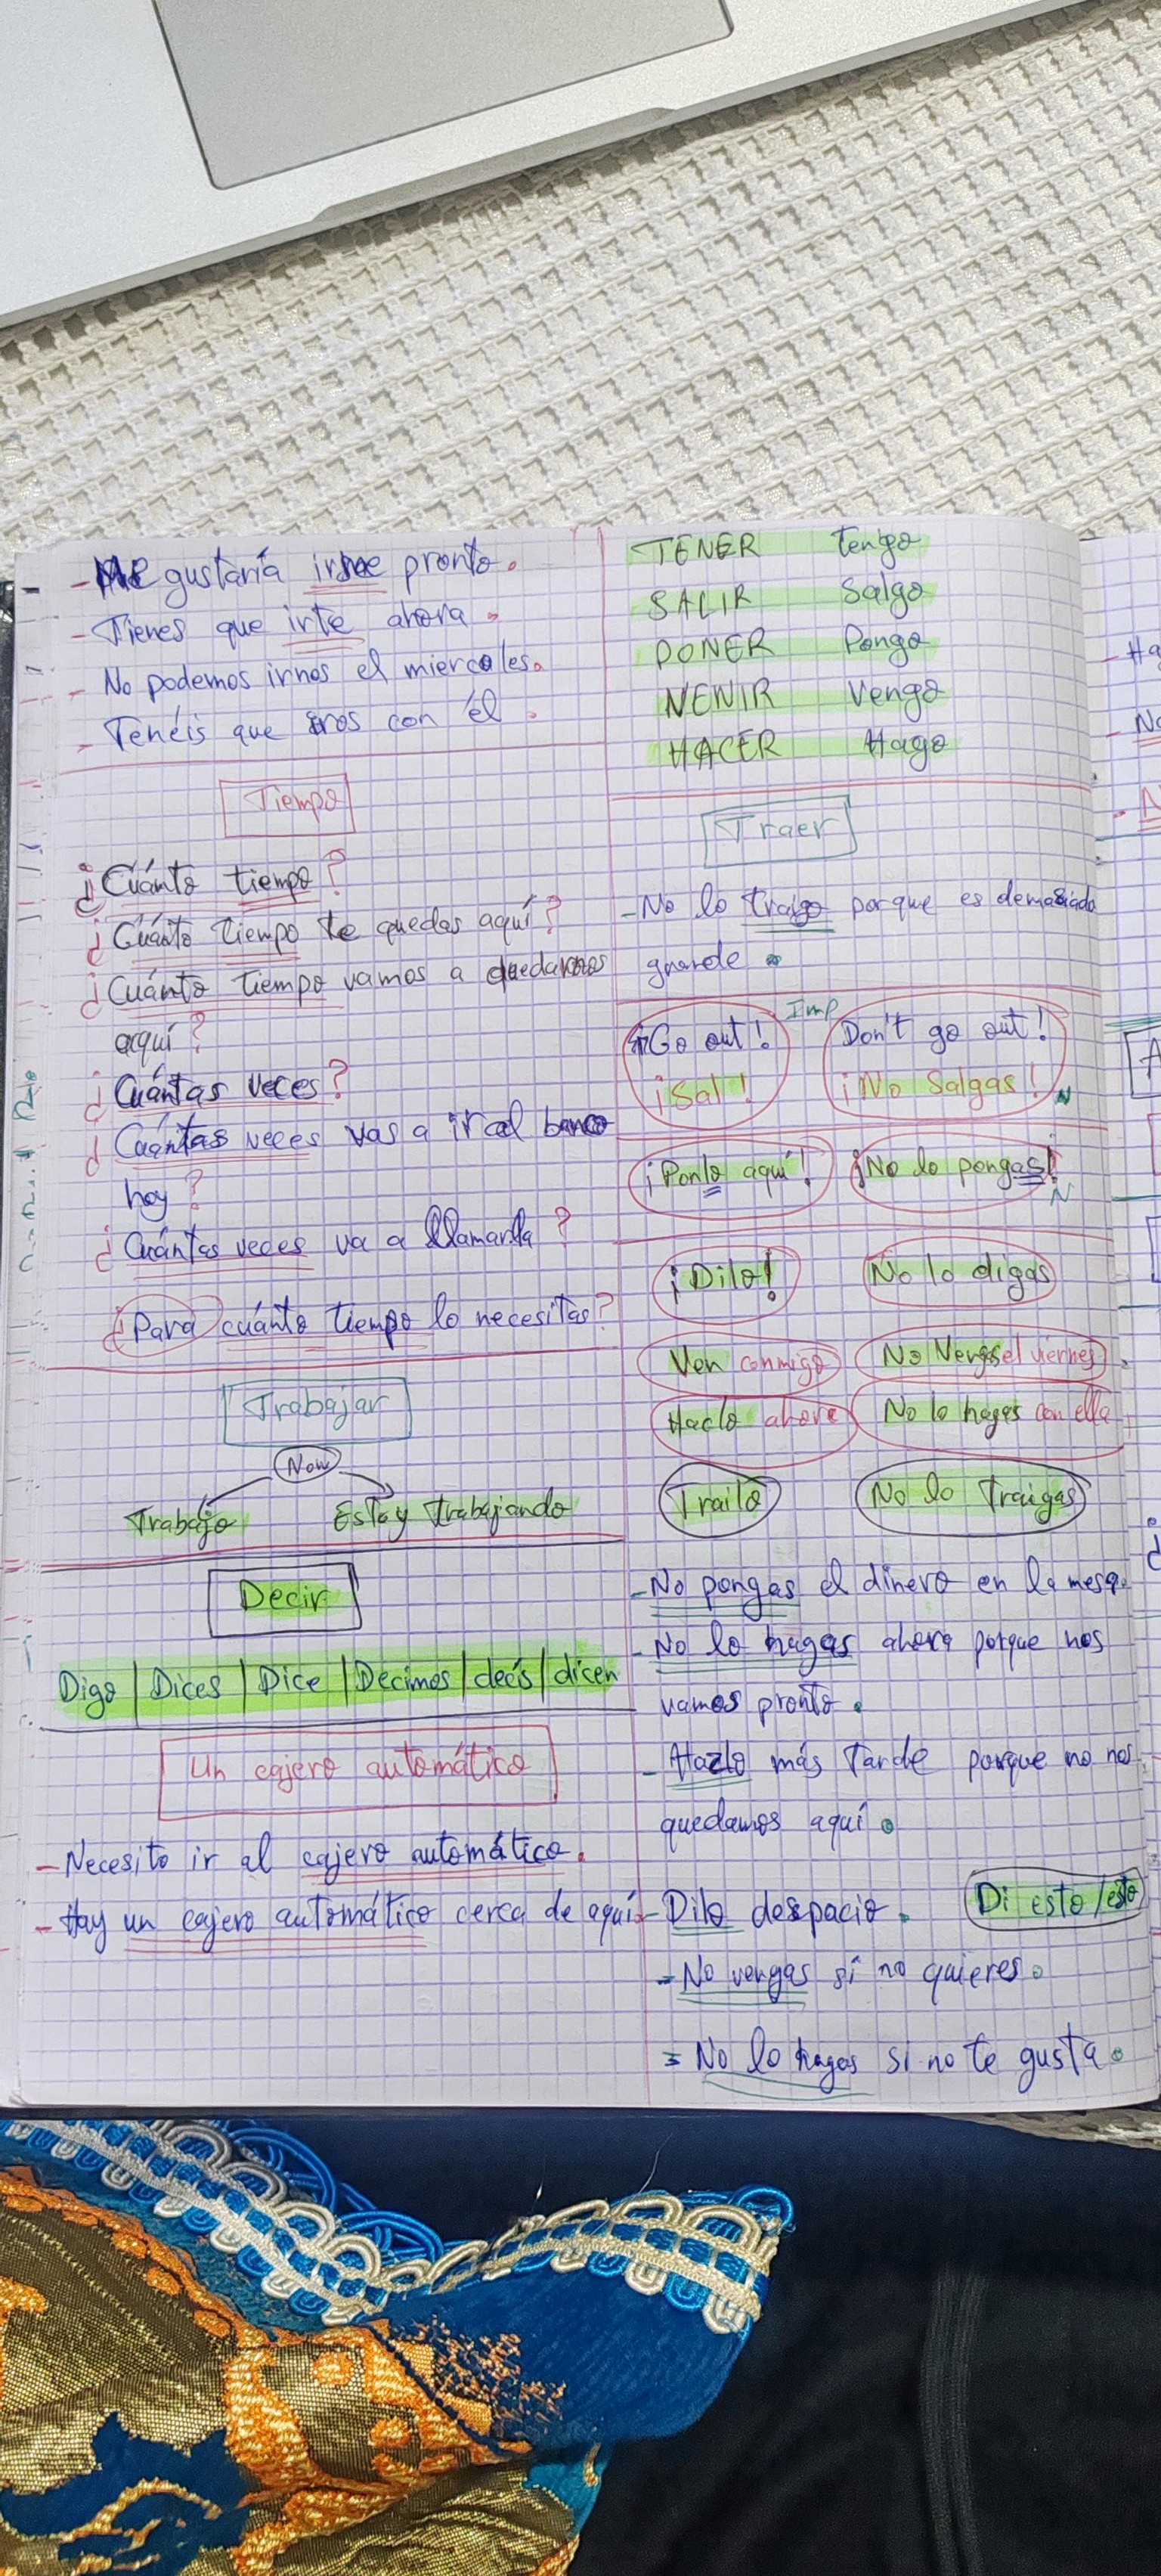 - Me gustaría irme pronto.
- Tienes que irte ahora.
- No podemos irnos el miercoles.
- Tenéis que iros con él.
Tiempo
¿Cuánto tiempo?
¿Cuánto tiempo te quedas aquí?
¿Cuánto tiempo vamos a quedarnos
aquí?
¿Cuántas veces?
¿Cuántas veces vas a ir al banco
hoy?
¿Cuántas veces va a llamarla?
¿Para cuánto tiempo lo necesitas?
Trabajar
Now
Trabajo Estoy trabajando
Decir
Digo | Dices | Dice | Decimos | decís | dicen
Un cajero automático
- Necesito ir al cajero automático.
- Hay un cajero automático cerca de aquí.
TENER Tengo
SALIR Salgo
PONER Pongo
VENIR Vengo
HACER Hago
Traer
- No lo traigo porque es demasiado
grande.
Imp
¡Go out! Don't go out!
¡Sal! ¡No Salgas!
¡Ponlo aquí! ¡No lo pongas!
¡Dilo! No lo digas
Ven conmigo No Vengas el viernes
Hazlo ahora No lo hagas con ella
Trailo No lo Traigas
- No pongas el dinero en la mesa.
- No lo hagas ahora porque nos
vamos pronto.
- Hazlo más Tarde porque no nos
quedamos aquí.
- Dilo despacio. Di esto/esto
- No vengas si no quieres.
- No lo hagas si no te gusta.